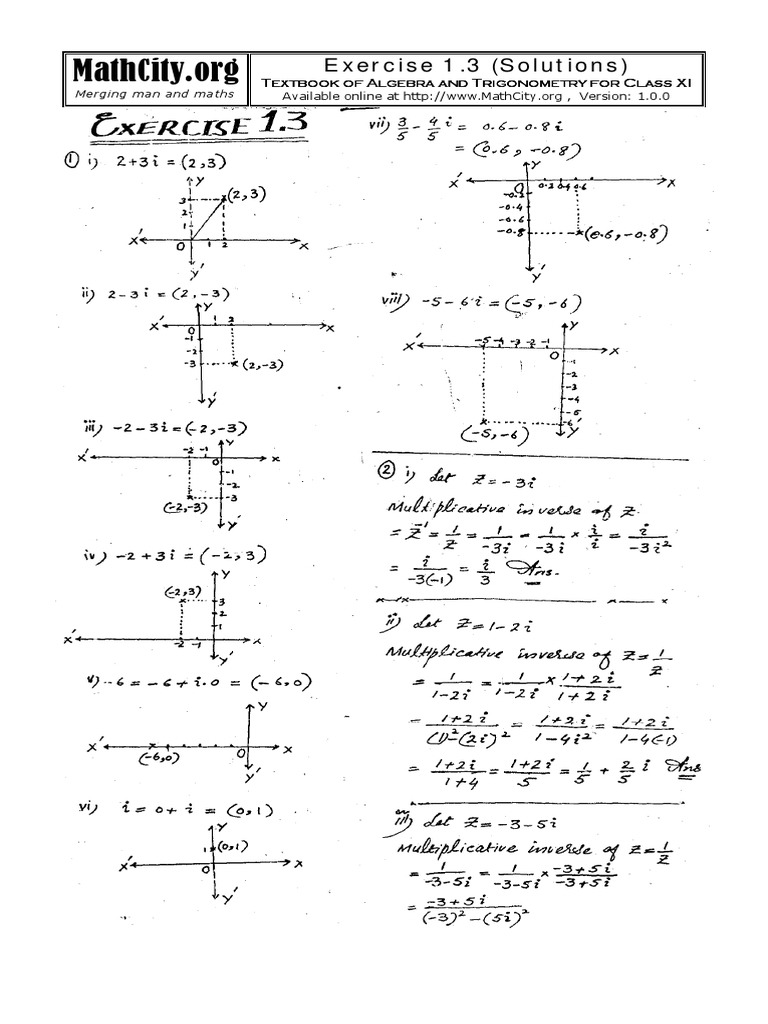 MathCity.org
Merging man and maths
Exercise 1.3 (Solutions)
TEXTBOOK OF ALGEBRA AND TRIGONOMETRY FOR CLASS XI
Available online at http://www.MathCity.org , Version: 1.0.0
EXERCISE 1.3
① i) 2+3i = (2,3)
Y
3
2
1
(2,3)
X' O 1 2 X
Y'
ii) 2-3i = (2,-3)
Y
1 2
X' O X
-1
-2
-3 (2,-3)
Y'
iii) -2-3i = (-2,-3)
Y
-2 -1
X' O X
-1
-2
-3
(-2,-3)
Y'
iv) -2+3i = (-2,3)
Y
(-2,3)
3
2
1
X' -2 -1 X
Y'
v) -6 = -6+i.0 = (-6,0)
Y
X' O X
(-6,0)
Y'
vi) i = 0+i = (0,1)
Y
1 (0,1)
X' O X
Y'
vii) 3/5 - 4/5 i = 0.6-0.8i
= (0.6, -0.8)
Y
X' O 0.2 0.4 0.6 X
-0.2
-0.4
-0.6
-0.8 (0.6,-0.8)
Y'
viii) -5-6i = (-5,-6)
Y
X' -5 -4 -3 -2 -1 O X
-1
-2
-3
-4
-5
-6
(-5,-6) Y'
② i) Let Z = -3i
Multiplicative inverse of Z.
= Z⁻¹ = 1/Z = 1/-3i = 1/-3i × i/i = i/-3i²
= i/-3(-1) = i/3 Ans.
ii) Let Z = 1-2i
Multiplicative inverse of Z = 1/Z
= 1/1-2i = 1/1-2i × 1+2i/1+2i
= 1+2i/(1)²-(2i)² = 1+2i/1-4i² = 1+2i/1-4(-1)
= 1+2i/1+4 = 1+2i/5 = 1/5 + 2/5 i Ans
iii) Let Z = -3-5i
Multiplicative inverse of Z = 1/Z
= 1/-3-5i = 1/-3-5i × -3+5i/-3+5i
= -3+5i/(-3)²-(5i)²